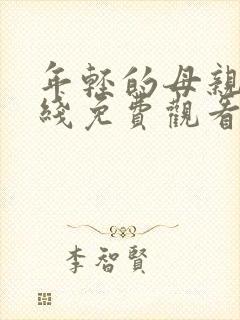 年軽的母親
綫免費觀看
李智賢